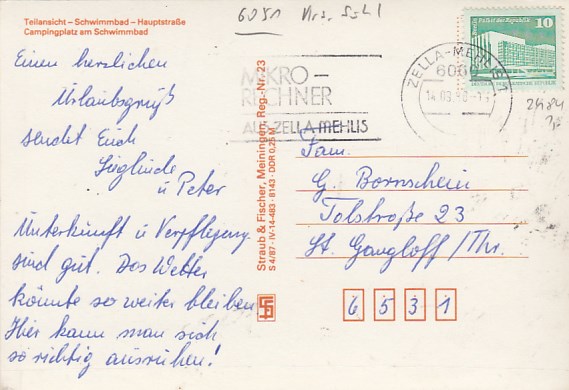 Teilansicht – Schwimmbad – Hauptstraße
Campingplatz am Schwimmbad
6051 Krs. Suhl
Einen herzlichen
Urlaubsgruß
sendet Euch
Sieglinde
u Peter
Unterkunft u Verpflegung
sind gut. Das Wetter
könnte so weiter bleiben
Hier kann man sich
so richtig ausruhen!
Straub & Fischer, Meiningen Reg.-Nr. 23
S 4/87 · IV-14-483 · 8143 · DDR 0,25 M
MIKRO–
RECHNER
AUS ZELLA-MEHLIS
ZELLA-MEHLIS 1
6060
14.09.
Berlin, Palast der Republik
10
2484
Fam.
G. Bornschein
Tolstraße 23
St. Gangloff/Thr.
6 5 3 1